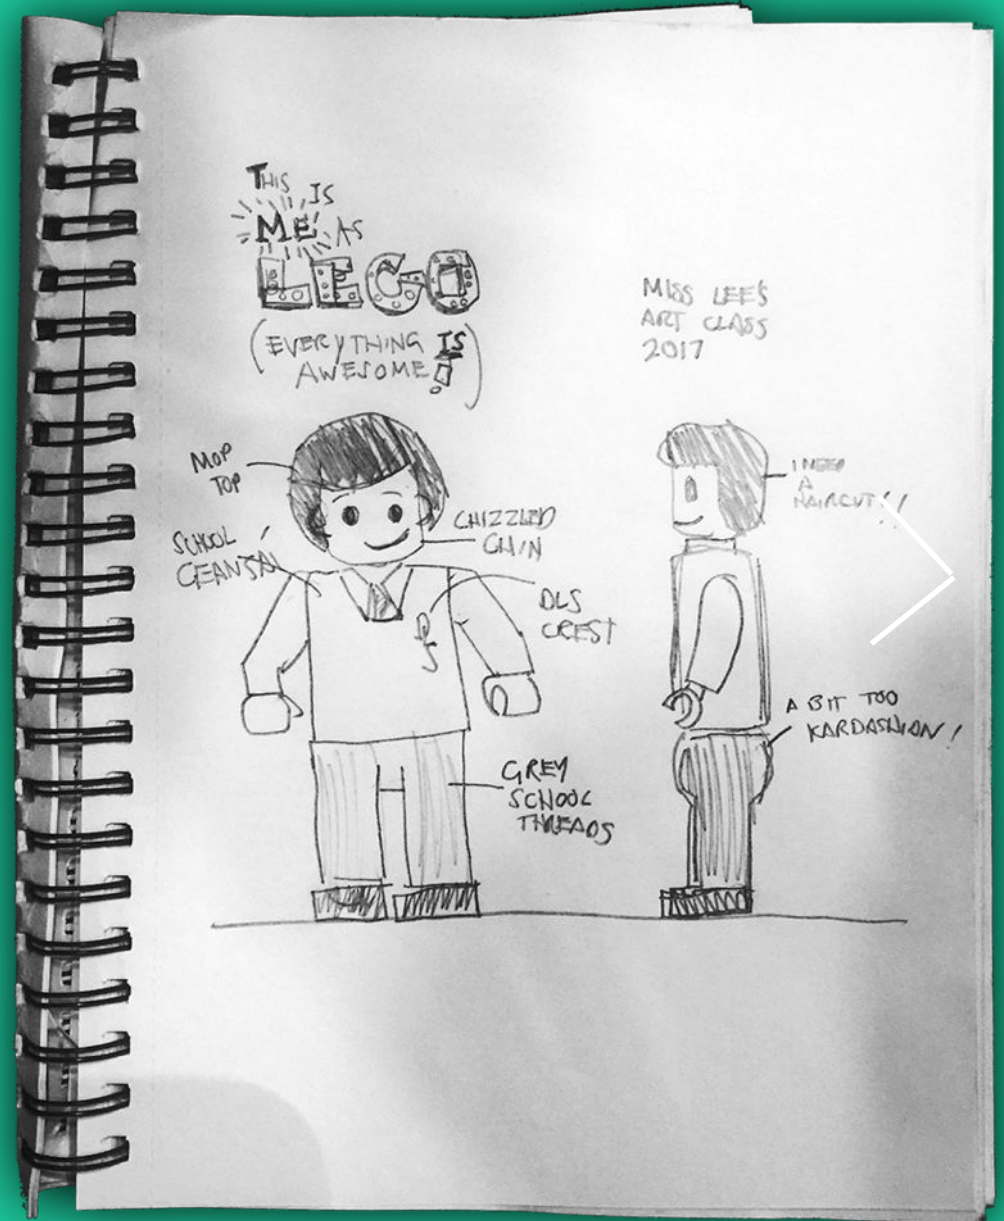 THIS IS
ME AS
LEGO
(EVERYTHING IS
AWESOME!)
MISS LEE'S
ART CLASS
2017
MOP
TOP
SCHOOL
GEANSAÍ
CHIZZLED
CHIN
DLS
CREST
GREY
SCHOOL
THREADS
I NEED
A
HAIRCUT!!
A BIT TOO
KARDASHIAN!